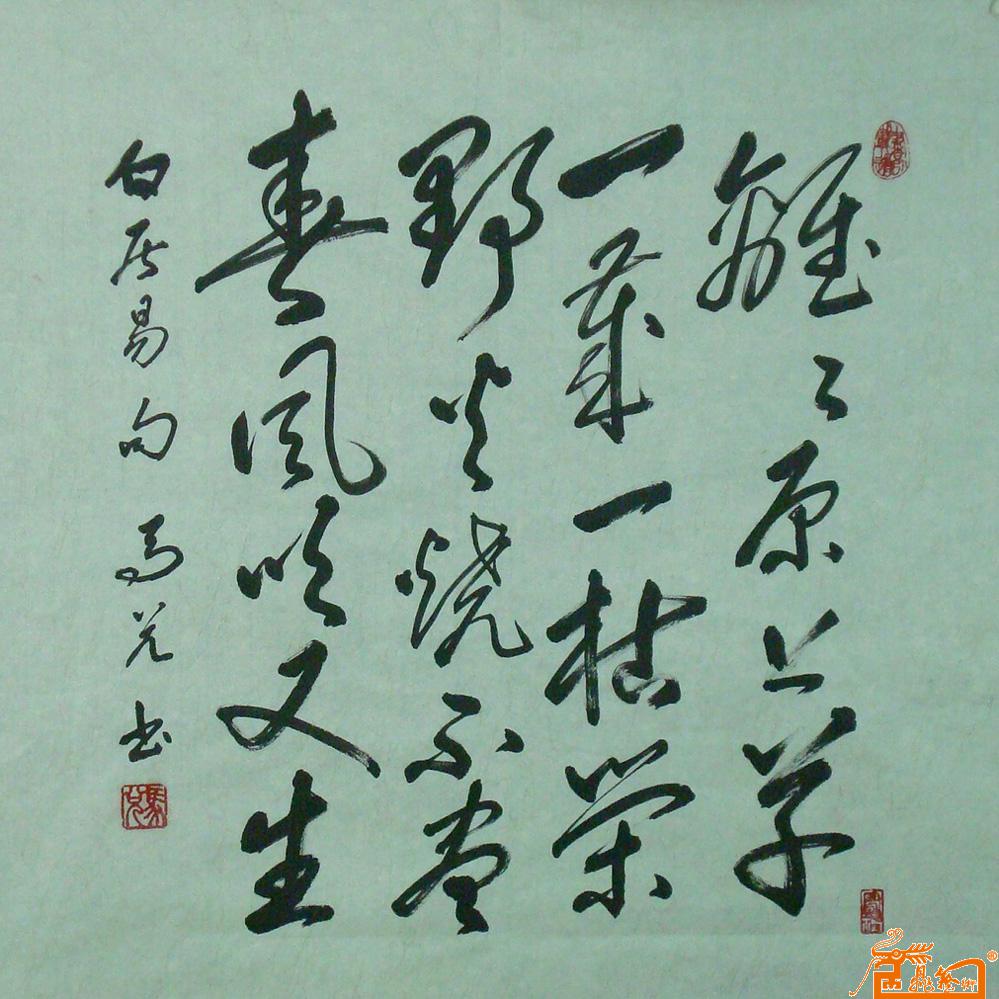 離〻原上草
一歲一枯榮
野火燒不盡
春風吹又生
白居易句 馬兌书